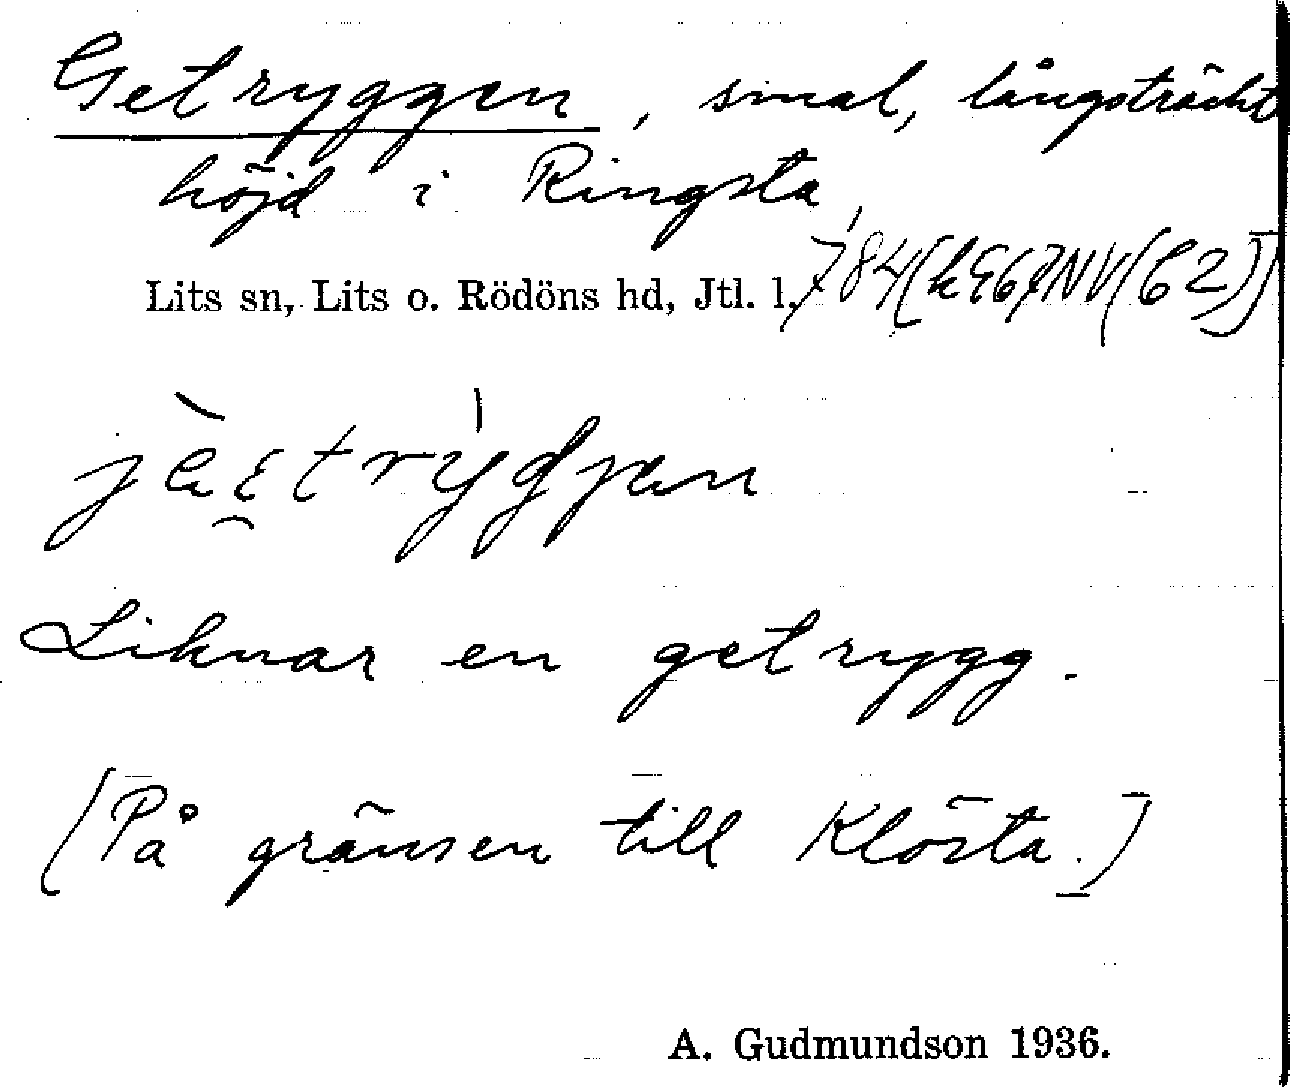 Getryggen, smal, långsträckt
höjd i Ringsta,
Lits sn, Lits o. Rödöns hd, Jtl. l.
Liknar en getrygg.
[På gränsen till Klösta.]
A. Gudmundson 1936.